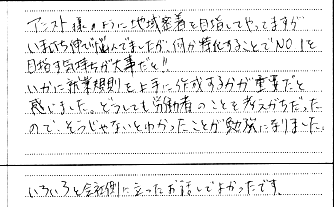 アシスト様のように地域密着を目指してやってますが
いまいち伸び悩んでましたが、何か特化することでNO1を
目指す気持ちが大事だと!!
いかに就業規則を上手に作成するかが重要だと
感じました。どうしても労働者のことを考えがちだった
ので、そうじゃないとわかったことが勉強になりました。
いろいろと会社側に立ったお話しでよかったです。